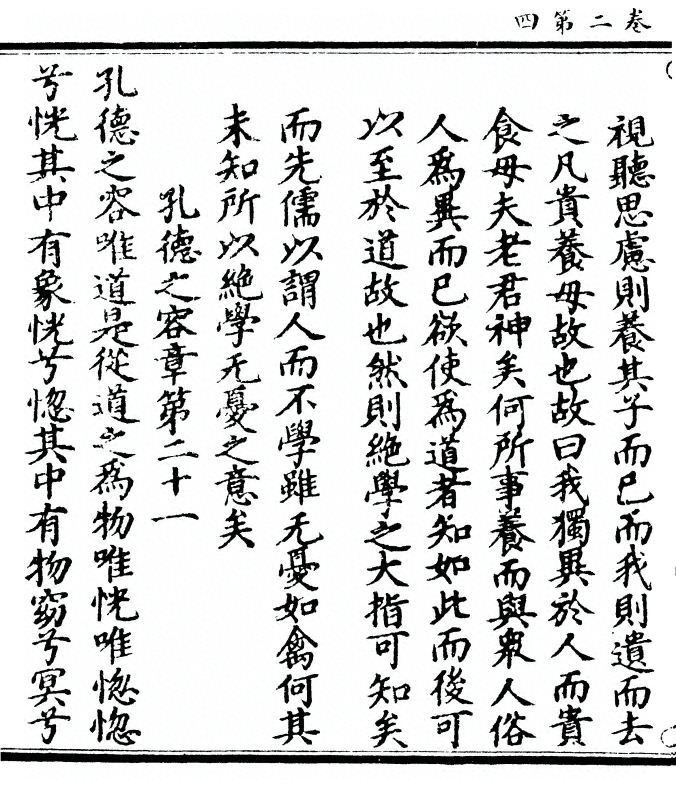 卷二第四
視聽思慮則養其子而已而我則遺而去
之凡貴養母故也故曰我獨異於人而貴
食母夫老君神矣何所事養而與衆人俗
人爲異而已欲使爲道者知如此而後可
以至於道故也然則絶學之大指可知矣
而先儒以謂人而不學雖无憂如禽何其
未知所以絶學无憂之意矣
孔德之容章第二十一
孔德之容唯道是從道之爲物唯恍唯惚惚
兮恍其中有象恍兮惚其中有物窈兮冥兮